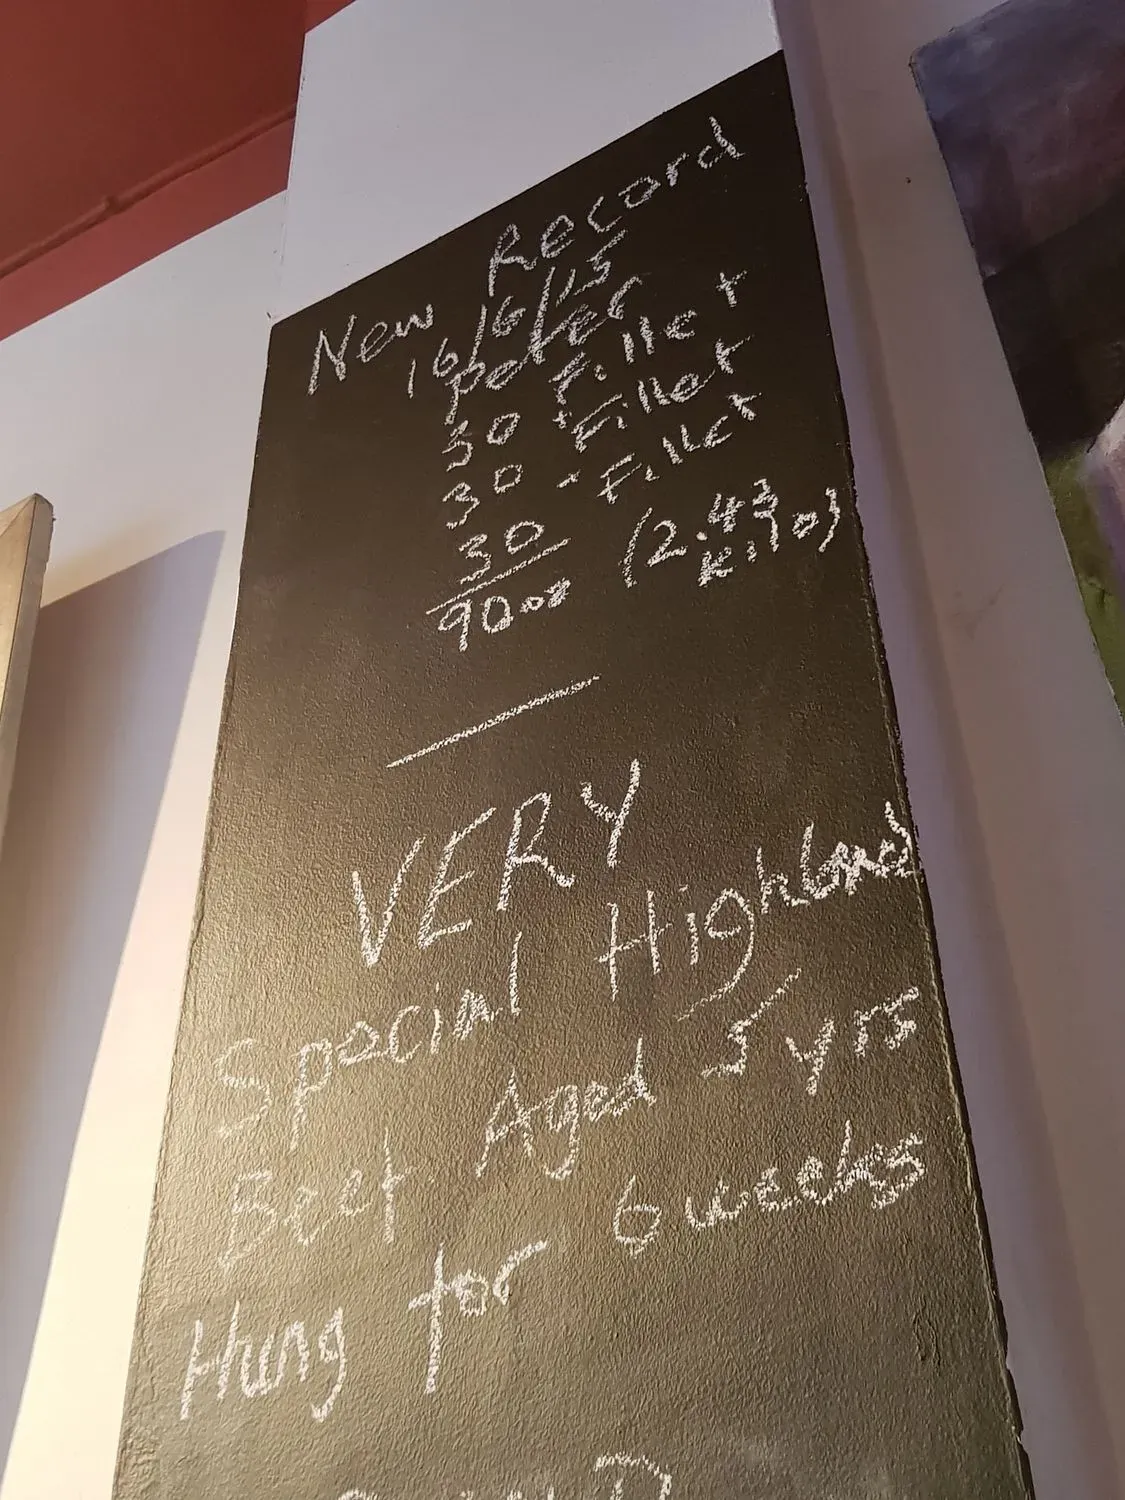 New Record
16/6/15
peter
30 Fillet
30 + Fillet
30 - Fillet
90oz (2.43 kilo)
VERY
Special Highland
Beef Aged 5 yrs
Hung for 6 weeks